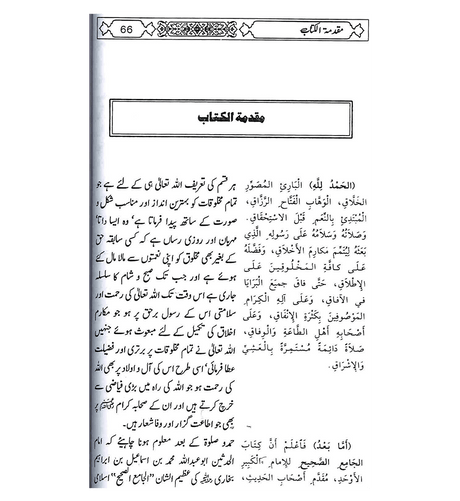 مقدمة الكتاب
66
مقدمة الكتاب
(الحَمْدُ لِلَّهِ) الْبَارِئِ الْمُصَوِّرِ
الخَلَّاقِ، الْوَهَّابِ الْفَتَّاحِ الرَّزَّاقِ،
الْمُبْتَدِئِ بِالنِّعَمِ قَبْلَ الاسْتِحْقَاقِ.
وَصَلَاتُهُ وَسَلَامُهُ عَلَى رَسُولِهِ الَّذِي
بَعَثَهُ لِيُتَمِّمَ مَكَارِمَ الأَخْلَاقِ، وَفَضَّلَهُ
عَلَى كَافَّةِ الْمَخْلُوقِينَ عَلَى
الإِطْلَاقِ، حَتَّى فَاقَ جَمِيعَ الْبَرَايَا
فِي الآفَاقِ، وَعَلَى آلِهِ الْكِرَامِ
الْمَوْصُوفِينَ بِكَثْرَةِ الإِنْفَاقِ، وَعَلَى
أَصْحَابِهِ أَهْلِ الطَّاعَةِ وَالْوِفَاقِ،
صَلَاةً دَائِمَةً مُسْتَمِرَّةً بِالْعَشِيِّ
وَالإِشْرَاقِ.
(أَمَّا بَعْدُ) فَاعْلَمْ أَنَّ كِتَابَ
الْجَامِعِ الصَّحِيحِ لِلإِمَامِ الْكَبِيرِ
الأَوْحَدِ، مُقَدَّمِ أَصْحَابِ الْحَدِيثِ،
ہر قسم کی تعریف اللہ تعالیٰ ہی کے لئے ہے جو
تمام مخلوقات کو بہترین انداز اور مناسب شکل و
صورت کے ساتھ پیدا فرماتا ہے' وہ ایسا داتا'
مہربان اور روزی رساں ہے کہ کسی سابقہ حق
کے بغیر بھی مخلوق کو اپنی نعمتوں سے مالا مال کئے
ہوئے ہے اور جب تک صبح و شام کا سلسلہ
جاری ہے اس وقت تک اللہ تعالیٰ کی رحمت اور
سلامتی اس کے رسول برحق پر ہو جو مکارم
اخلاق کی تکمیل کے لئے مبعوث ہوئے جنہیں
اللہ تعالیٰ نے تمام مخلوقات پر برتری اور فضیلت
عطا فرمائی' اسی طرح اس کی آل و اولاد پر بھی اللہ
کی رحمت ہو جو اللہ کی راہ میں بڑی فیاضی سے
خرچ کرتے ہیں اور ان کے صحابہ کرام پر
بھی جو اطاعت گزار اور وفا شعار ہیں۔
حمد و صلوٰۃ کے بعد معلوم ہونا چاہیئے کہ امام
المحدثین ابو عبداللہ محمد بن اسماعیل بن ابراہیم
بخاری کی عظیم الشان "الجامع الصحیح" اسلامی